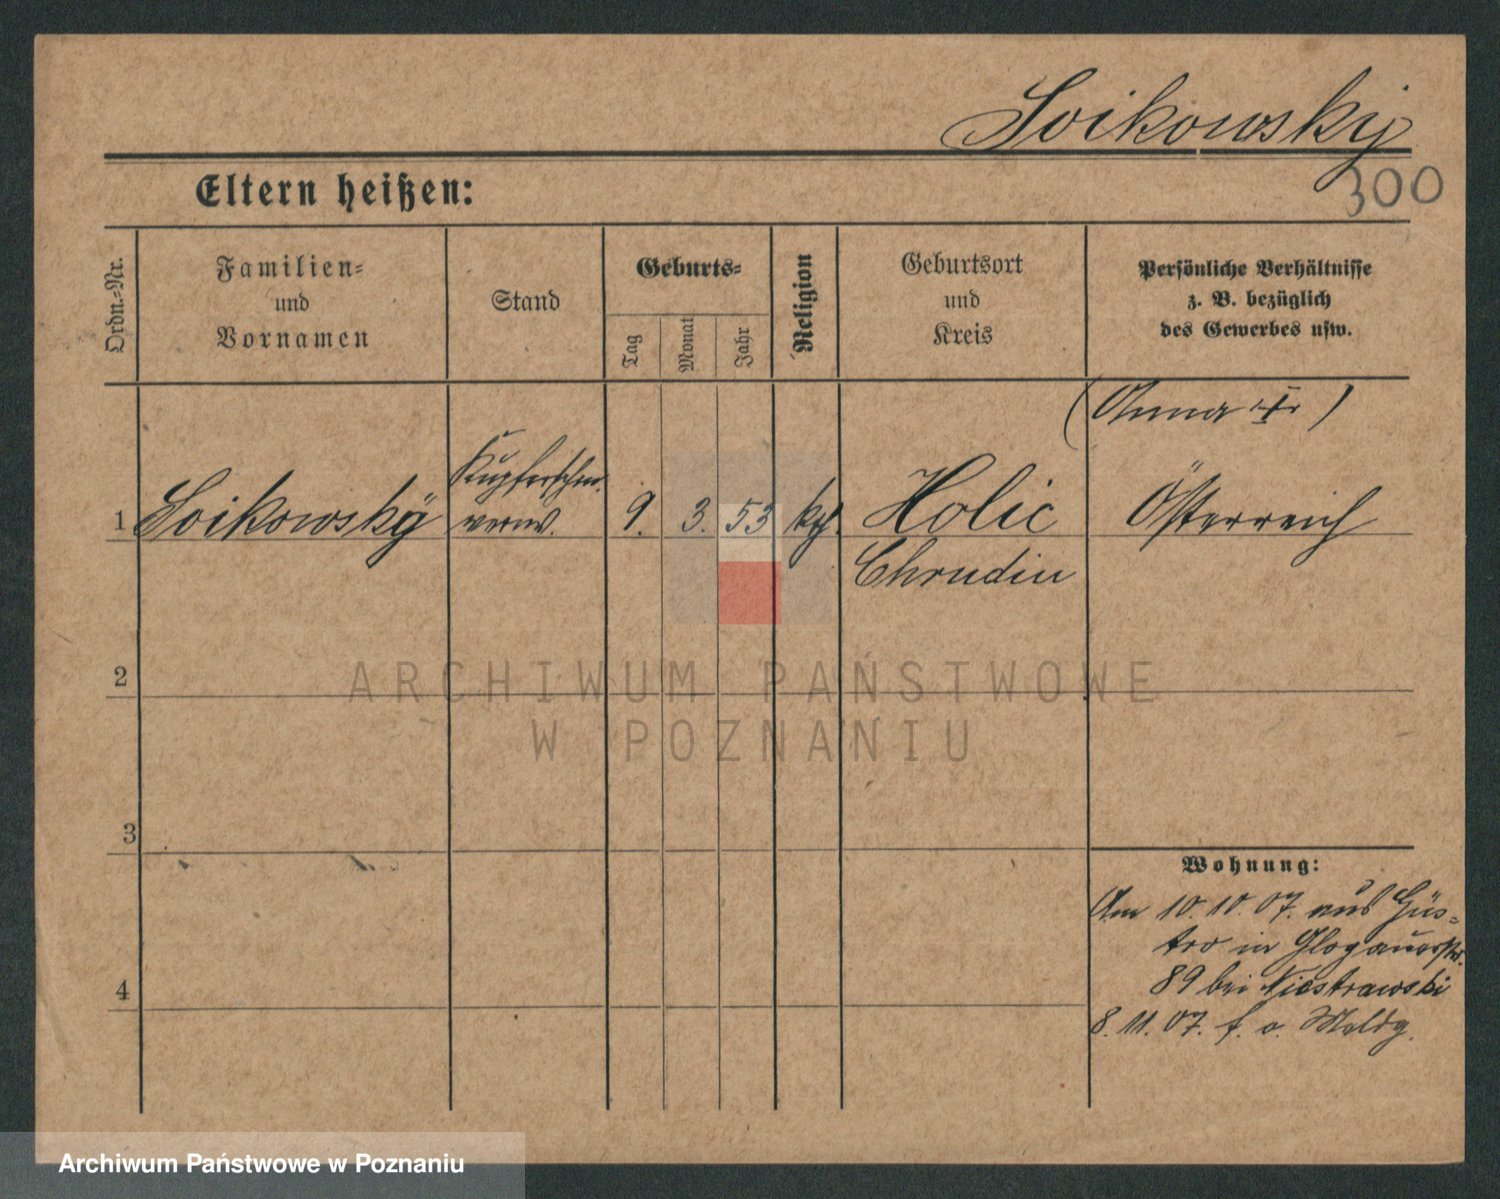 Soikowskÿ
300
Eltern heißen:
Ordn.=Nr.
Familien=
und
Vornamen
Stand
Geburts=
Tag
Monat
Jahr
Religion
Geburtsort
und
Kreis
Persönliche Verhältnisse
z. B. bezüglich
des Gewerbes usw.
(Anna )
1
Soikowskÿ
Kupferschm.
verw.
9.
3.
53
kth.
Holic
Chrudin
Österreich
2
3
4
Wohnung:
Am 10.10.07. aus Güs-
tro in Glogauerstr.
89 bei Niestrawski
8.11.07. f. o. Meldg.
ARCHIWUM PAŃSTWOWE
W POZNANIU
Archiwum Państwowe w Poznaniu